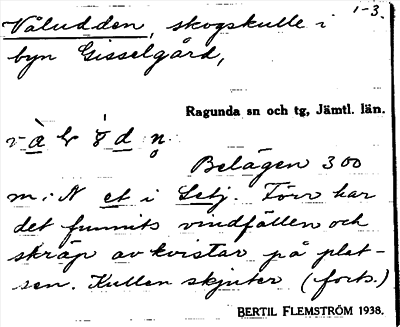 1-3.
Våludden, skogskulle i
byn Gisselgård,
Ragunda sn och tg, Jämtl. län.
Belägen 300
m. N et i Förr har
det funnits vindfällen och
skräp av kvistar på plat-
sen. Kullen skjuter (forts.)
BERTIL FLEMSTRÖM 1938.